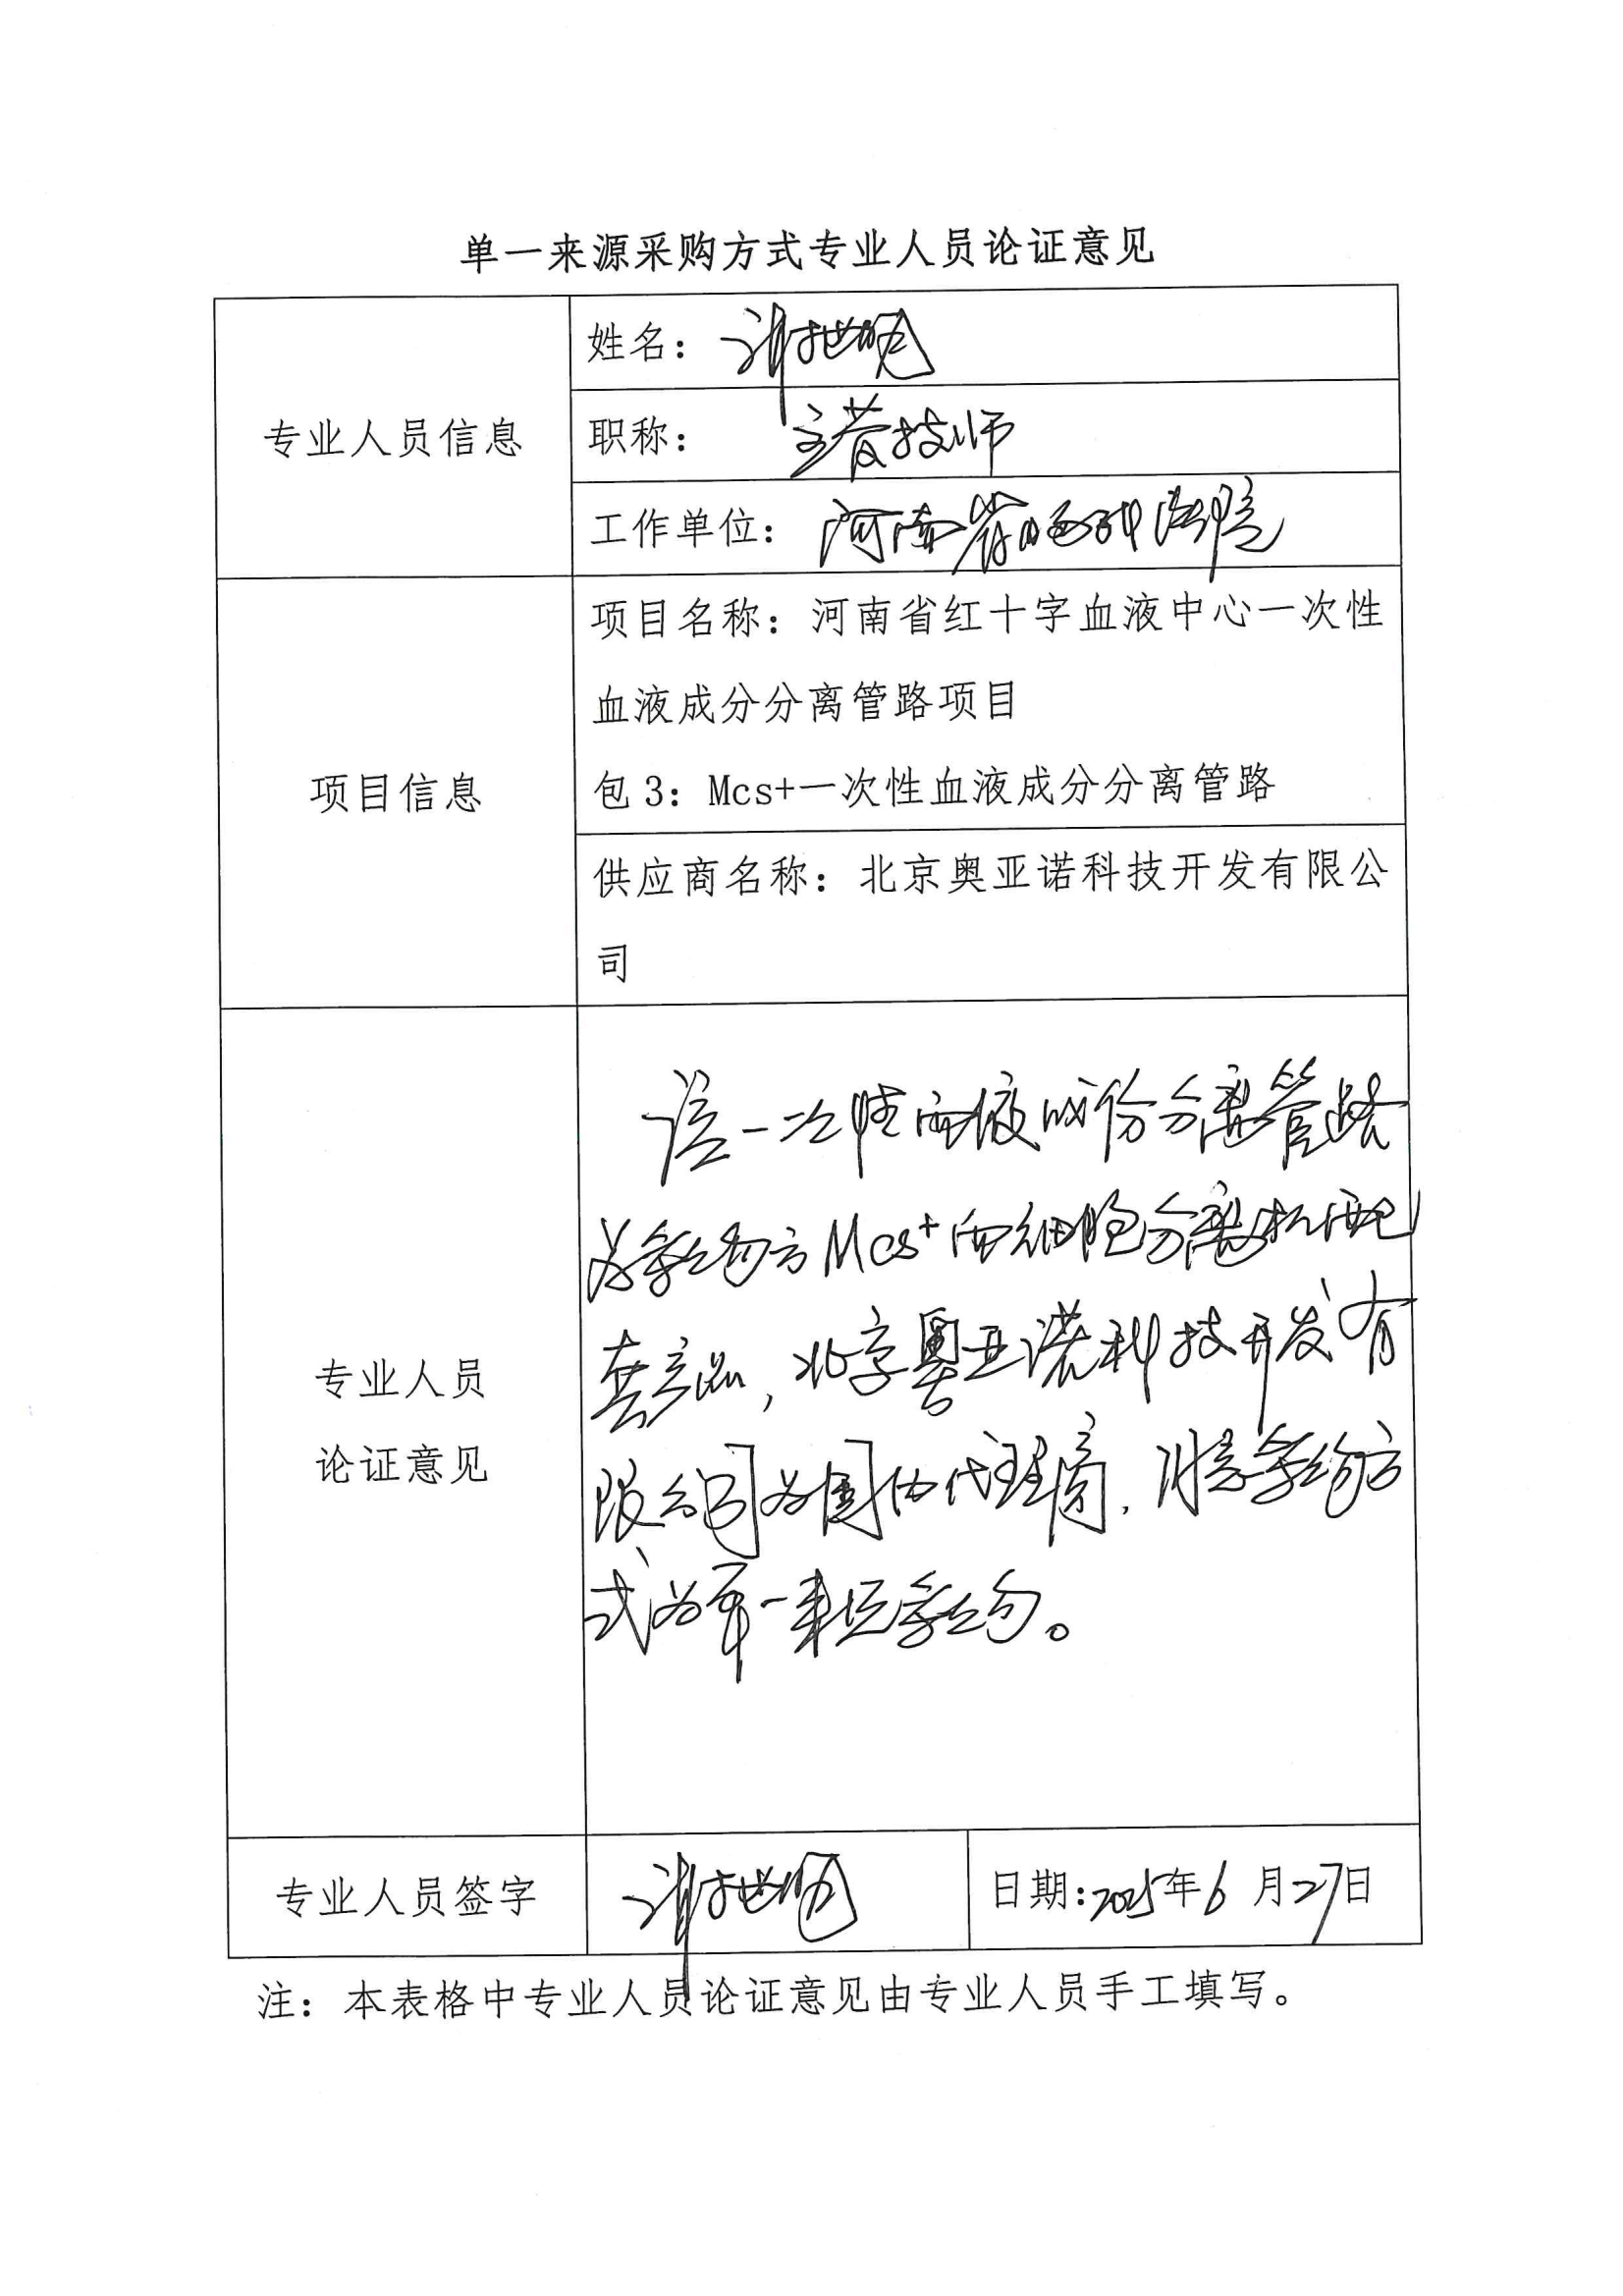 单一来源采购方式专业人员论证意见
专业人员信息
姓名：
职称：主管技师
工作单位：河南省胸科医院
项目信息
项目名称：河南省红十字血液中心一次性
血液成分分离管路项目
包 3：Mcs+一次性血液成分分离管路
供应商名称：北京奥亚诺科技开发有限公
司
专业人员
论证意见
该一次性血液成份分离管路
为采购方Mcs+血细胞分离机配
套产品，北京奥亚诺科技开发有
限公司为国内代理商，同意采购方
式为单一来源采购。
专业人员签字
日期：2025年6月27日
注：本表格中专业人员论证意见由专业人员手工填写。